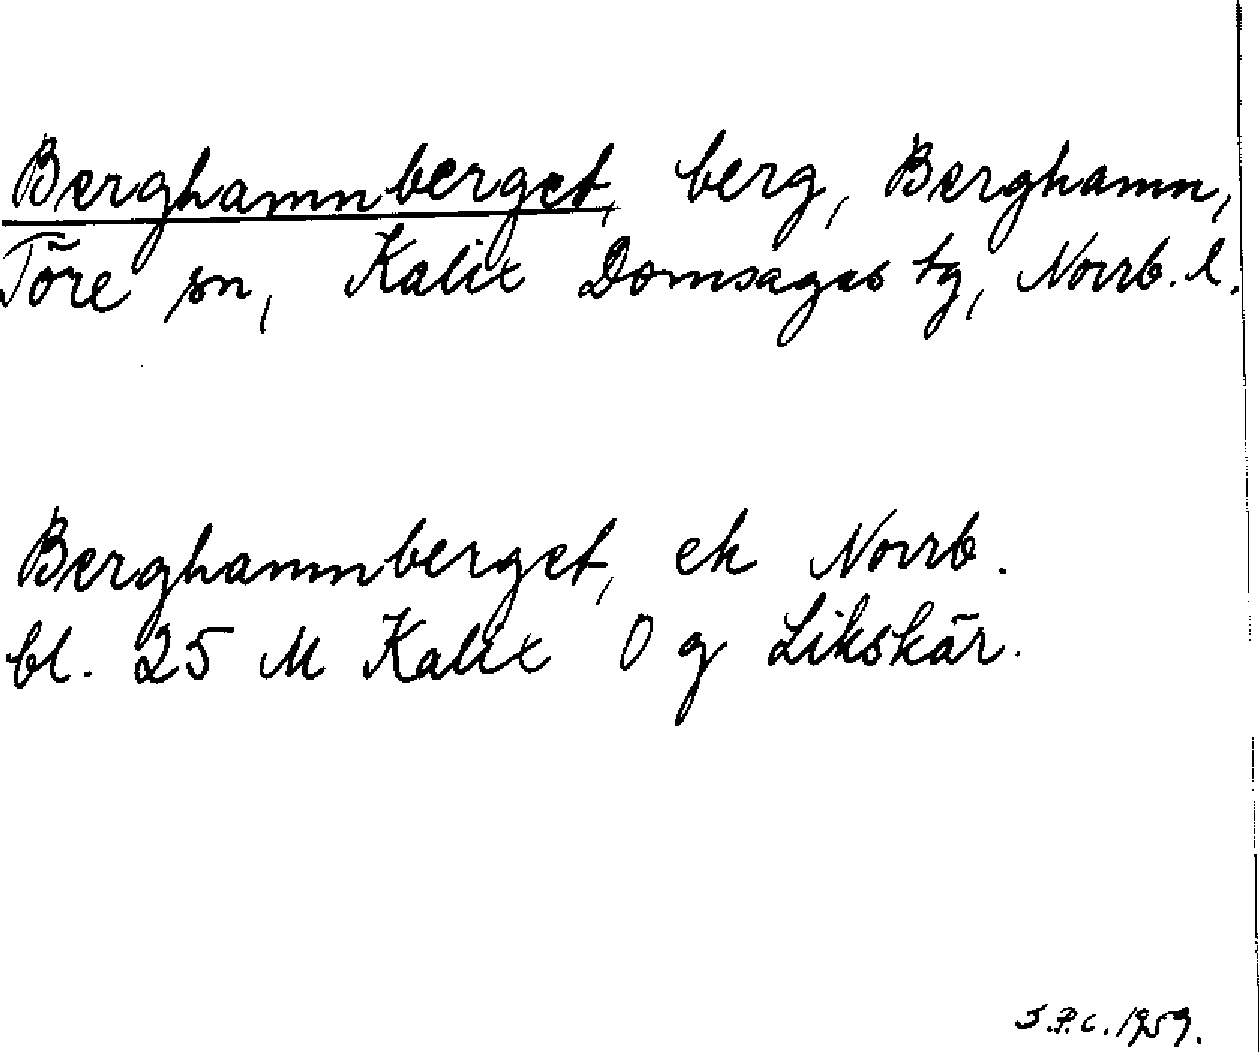 Berghamnberget, berg, Berghamn,
Töre sn, Kalix Domsagas tg, Norrb. l.
Berghamnberget, ek Norrb.
bl. 25 M Kalix O g Likskär.
S.P.C. 1959.